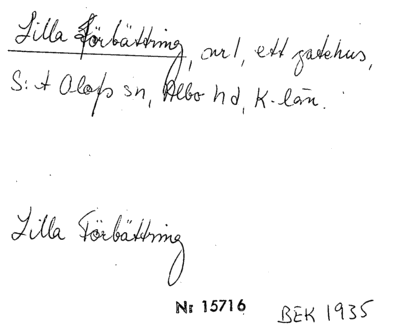 Lilla Förbättring, url, ett gatehus,
S:t Olofs sn, Albo hd, K-län.
Lilla Förbättring
Nr 15716
BEK 1935